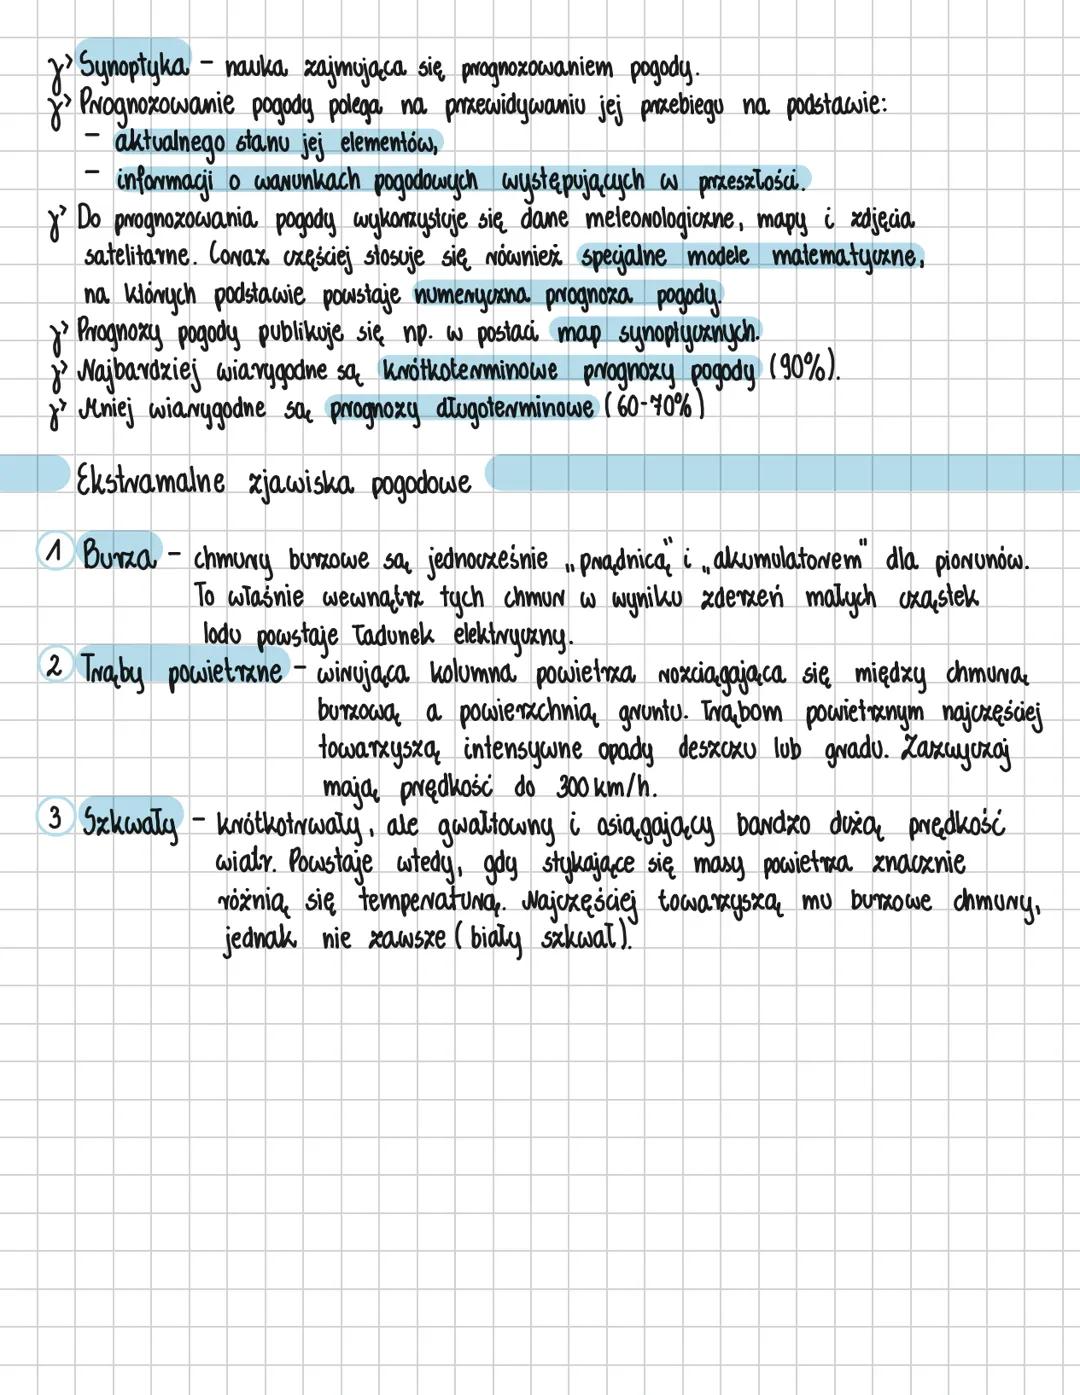 Synoptyka - nauka zajmująca się prognozowaniem pogody.
Prognozowanie pogody polega na przewidywaniu jej przebiegu na podstawie:
- aktualnego stanu jej elementów,
- informacji o warunkach pogodowych występujących w przeszłości.
Do prognozowania pogody wykorzystuje się dane meteorologiczne, mapy i zdjęcia
satelitarne. Coraz częściej stosuje się również specjalne modele matematyczne,
na których podstawie powstaje numeryczna prognoza pogody.
Prognozy pogody publikuje się np. w postaci map synoptycznych.
Najbardziej wiarygodne są krótkoterminowe prognozy pogody (90%).
Mniej wiarygodne są prognozy długoterminowe (60-70%)
Ekstramalne zjawiska pogodowe
1 Burza - chmury burzowe są jednocześnie „prądnicą” i „akumulatorem” dla piorunów.
To właśnie wewnątrz tych chmur w wyniku zderzeń małych cząstek
lodu powstaje ładunek elektryczny.
2 Trąby powietrzne - wirująca kolumna powietrza rozciągająca się między chmurą
burzową a powierzchnią gruntu. Trąbom powietrznym najczęściej
towarzyszą intensywne opady deszczu lub gradu. Zazwyczaj
mają prędkość do 300 km/h.
3 Szkwały - krótkotrwały, ale gwałtowny i osiągający bardzo dużą prędkość
wiatr. Powstaje wtedy, gdy stykające się masy powietrza znacznie
różnią się temperaturą. Najczęściej towarzyszą mu burzowe chmury,
jednak nie zawsze (biały szkwał).